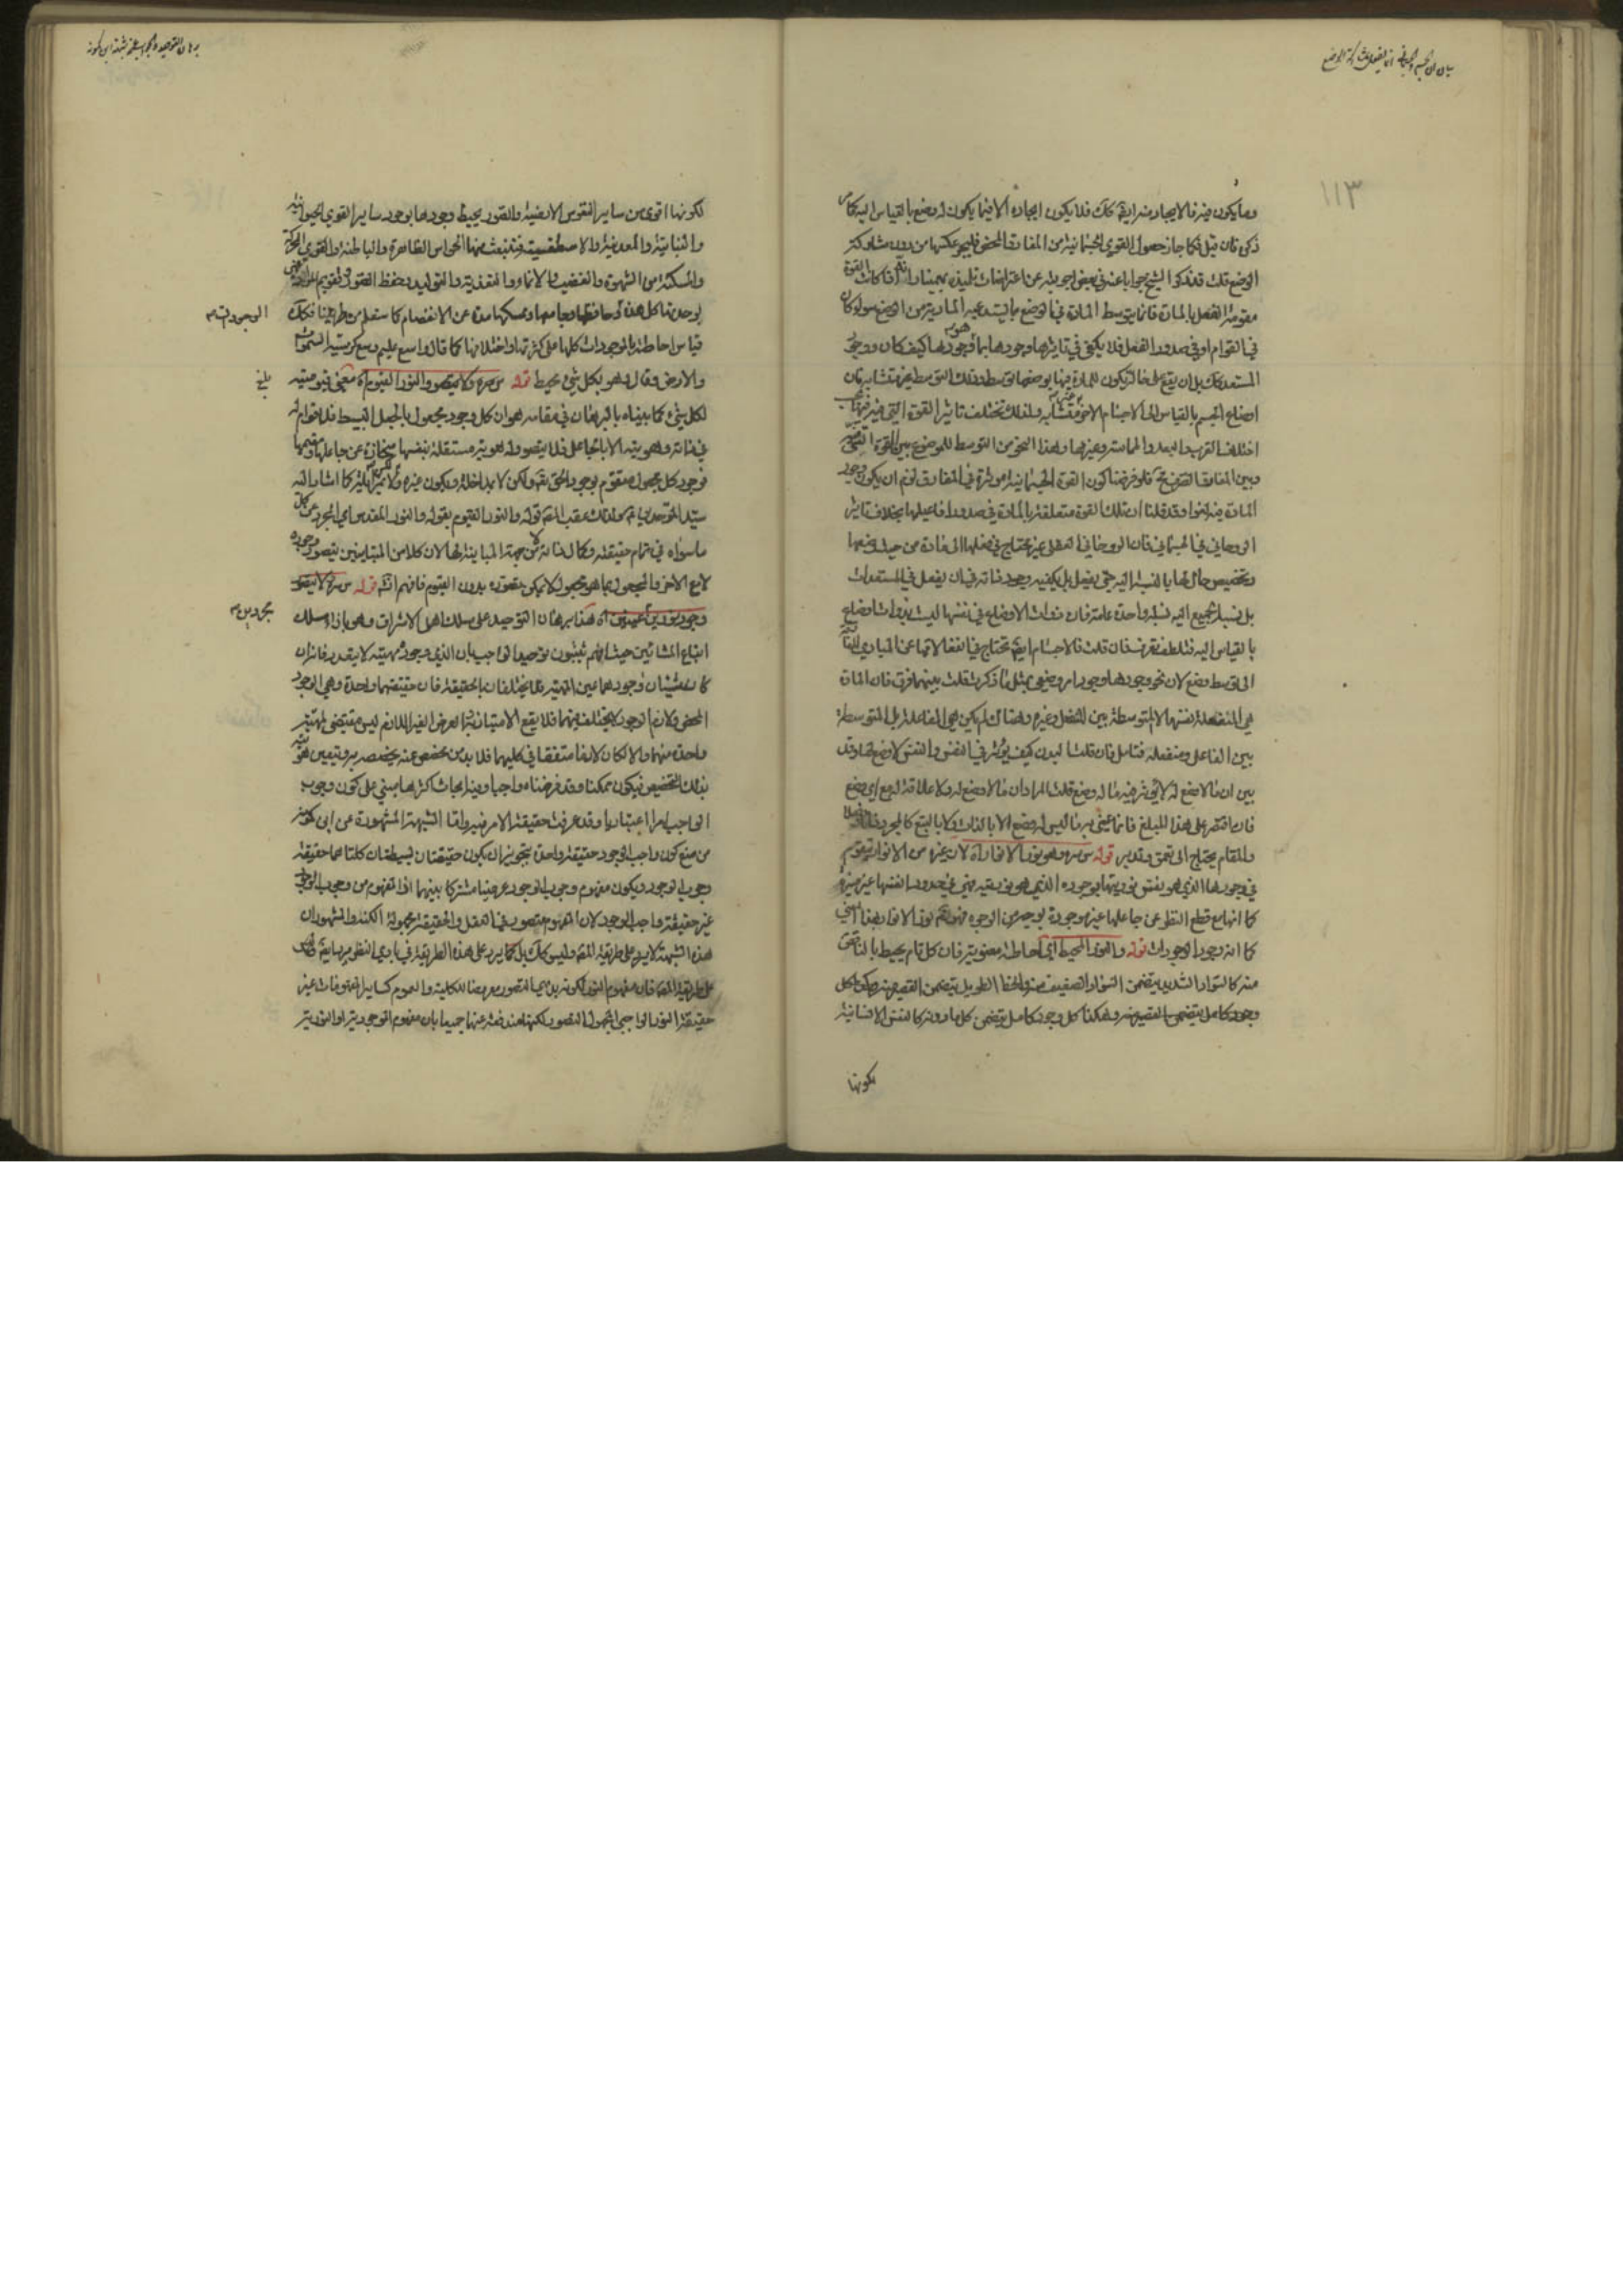 بيان ان الجسم والجسماني انما يفعل بمشاركة الوضع
١١٣
وما يكون فيه فالايجاد منه ايضا كذلك فلا يكون ايجاده الا فيما يكون له وضع بالقياس اليه كما مر
ذكره فان قيل فكما جاز حصول القوى الجسمانية من المفارقات المحض فليجز عكسها من دون مشاركة
الوضع قلت قد ذكر الشيخ جوابا عنه في بعض اجوبته عن اعتراضات تلميذه بهمنيار انه اذا كانت القوة
مقومة الفعل بالمادة فانما يتوسط المادة في الوضع ما يستدعيه المادية من الوضع سواء كان
في القوام او في صدور الفعل فلا يكفي في تاثيرها وجودها بما هو وجودها كيف كان ووجود
المستعد كذلك بل ان يقع على حالة يكون للمادة فيها بوضعها توسط وذلك التوسط غير متشابه فان
اوضاع الجسم بالقياس الى الاجسام الاخر غير متشابه ولذلك تختلف تاثير القوة التي فيه فيها بحسب
اختلاف القرب والبعد والمماسة وغيرها وهذا النحو من التوسط للموضوع بين القوة الجسمية
وبين المفارق الغير
المادة فيه لغوا وقد قلنا ان تلك القوة متعلقة بالمادة في صدور افاعيلها بخلاف تاثير
الروحاني في الجسماني فان الروحاني العقلي غير محتاج في فعلها الى مادة من حيث وضعها
وتخصيص حال لها بالنسبة اليه حتى يفعل بل يكفيه وجود ذاته في ان يفعل في المستعدات
بل نسبة الجميع اليه نسبة واحدة عامة فان ذوات الاوضاع في نفسها ليست بذوات اوضاع
بالقياس اليه فان قلت فالاجسام ايضا تحتاج في انفعالاتها عن المبادي
الى توسط وضع لان نحو وجودها وجود امر وضعي بمثل ما ذكرت قلت بينهما فرق فان المادة
هي المنفعلة نفسها لا المتوسطة بين المنفعل وغيره وهناك لم يكن هي الفاعلة بل المتوسطة
بين الفاعل ومنفعله فتامل فان قلت البدن كيف يؤثر في النفس والنفس لا وضع لها وقد
بين ان ما لا وضع له لا يؤثر فيه ما له وضع قلت المراد ان ما لا وضع له ولا علاقة له مع ذي وضع
فان اقتصر على هذا المبلغ فانما عني به ما ليس له وضع لا بالذات ولا بالتبع كالمجرد
والمقام يحتاج الى تعمق وتدبر قوله س سره وهو نور الانوار اه لان غيره من الانوار يتقوم
في وجودها الذي هو نفس نوريتها بوجوده الذي هو نور بقيومه فهي في حدود انفسها غير نيرة
كما انها مع قطع النظر عن جاعلها غير موجودة بوجه من الوجوه فهو تعالى نور الانوار بهذا المعنى
كما انه وجود الوجودات قوله والنور المحيط اي احاطة معنوية فان كل تام يحيط بالناقص
منه كالسواد الشديد يتضمن السواد الضعيف منه والخط الطويل يتضمن القصير منه وهكذا كل
وجود كامل يتضمن القصير منه وهكذا كل وجود كامل يتضمن كل ما دونه كالنفس الانسانية
لكونها
برهان التوحيد والجواب عن شبهة ابن كمونه
لكونها اقوى من ساير النفوس الارضية والصور يحيط وجودها بوجود ساير القوى الحيوانية
والنباتية والمعدنية والاسطقسية فتنبعث منها الحواس الظاهرة والباطنة والقوى المحركة
والمسكنة من الشهوة والغضب والانماء والتغذية والتوليد وحفظ الصور وتقويم المواد فهي
بوحدتها كل هذه وحافظها وجامعها وممسكها مدة عن الانفصام كما ستعلم من طريقنا فكذلك
قياس احاطته بالموجودات كلها على كثرتها واختلافها كما قال واسع عليم وسع كرسيه السموات
والارض وقال وهو بكل شيء محيط قوله س سره والنور القيوم اه معنى قيوميته
لكل شيء كما بيناه بالبرهان في مقامه هو ان كل وجود مجعول بالجعل البسيط فلا قوام له
في ذاته وهويته الا بالجاعل فلا يتصور له هوية مستقلة بنفسها منحازة عن جاعلها ومقيمها
فوجود كل مجعول متقوم بوجود الحق تعالى ولكن لا بمداخلة ويكون غيره ولا بمزايلة كما اشار اليه
سيد الموحدين ولذلك عقب المصنف قوله والنور القيوم بقوله والنور المقدس اي المجرد عن كل
ما سواه في تمام حقيقته وكمال ذاته لا من جهة المباينة لها لان كلا من المتباينين يتصور وجوده
لا مع الاخر والمجعول بما هو مجعول لا يمكن تصوره بدون القيوم فافهم انشاء الله قوله س سره لا يتصور
وجود نورين مجردين اه هذا برهان التوحيد على مسلك اهل الاشراق وهو بازاء مسلك
اتباع المشائين حيث انهم يثبتون توحيد الواجب بان الذي وجوده مهيته لا يتعدد فانه ان
كان شيئان وجودهما عين المهية فلا يختلفان بالحقيقة فان حقيقتهما واحدة وهي الوجود
المحض ولازم الوجود لا يختلف فيهما فلا يقع الامتياز به والعرض الغير اللازم ليس مقتضى مهية
واحدة منهما والا لكان لازما متفقا في كليهما فلا بد من مخصص عنه يتخصص به ويتعين هوية
بذلك التخصيص فيكون ممكنا وقد فرضناه واجبا وفيه ابحاث اكثرها مبنى على كون وجوب
الواجب امرا اعتباريا وقد عرفت حقيقة الامر فيه واما الشبهة المشهورة عن ابن كمونه
من منع كون واجب الوجود حقيقة واحدة بتجويز ان يكون حقيقتان بسيطتان كلتاهما حقيقة
وجوب الوجود ويكون مفهوم وجوب الوجود عرضيا مشتركا بينهما اذ المفهوم من وجوب الوجود
غير حقيقة واجب الوجود لان المفهوم متصور في العقل والحقيقة مجهولة الكنه والمشهور ان
هذه الشبهة لا يرد على طريقة المصنف وليس كذلك بل كما يرد على هذه الطريقة في بادي النظر يرد ايضا
على طريقة المصنف فان مفهوم النور لكونه بديهي التصور معروضا للكلية والعموم كساير المفهومات غير
حقيقة النور الواجبي المجهول التصور لكنها مندفعة عنها جميعا بان مفهوم الموجودية او النورية
الوجودات
مجردين